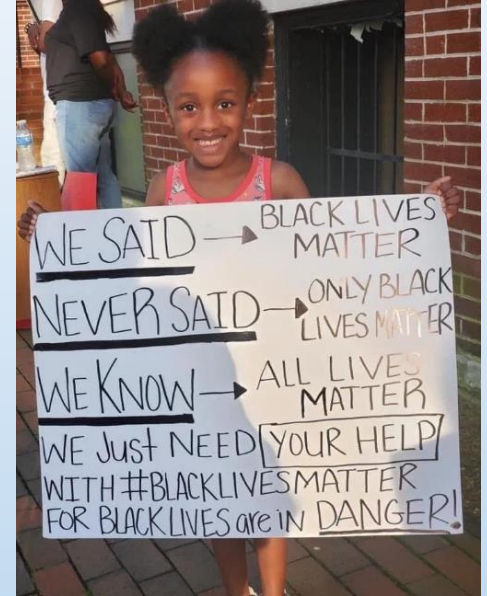 WE SAID → BLACK LIVES
MATTER
NEVER SAID → ONLY BLACK
LIVES MATTER
WE KNOW → ALL LIVES
MATTER
WE JUST NEED YOUR HELP
WITH #BLACKLIVESMATTER
FOR BLACK LIVES are in DANGER!